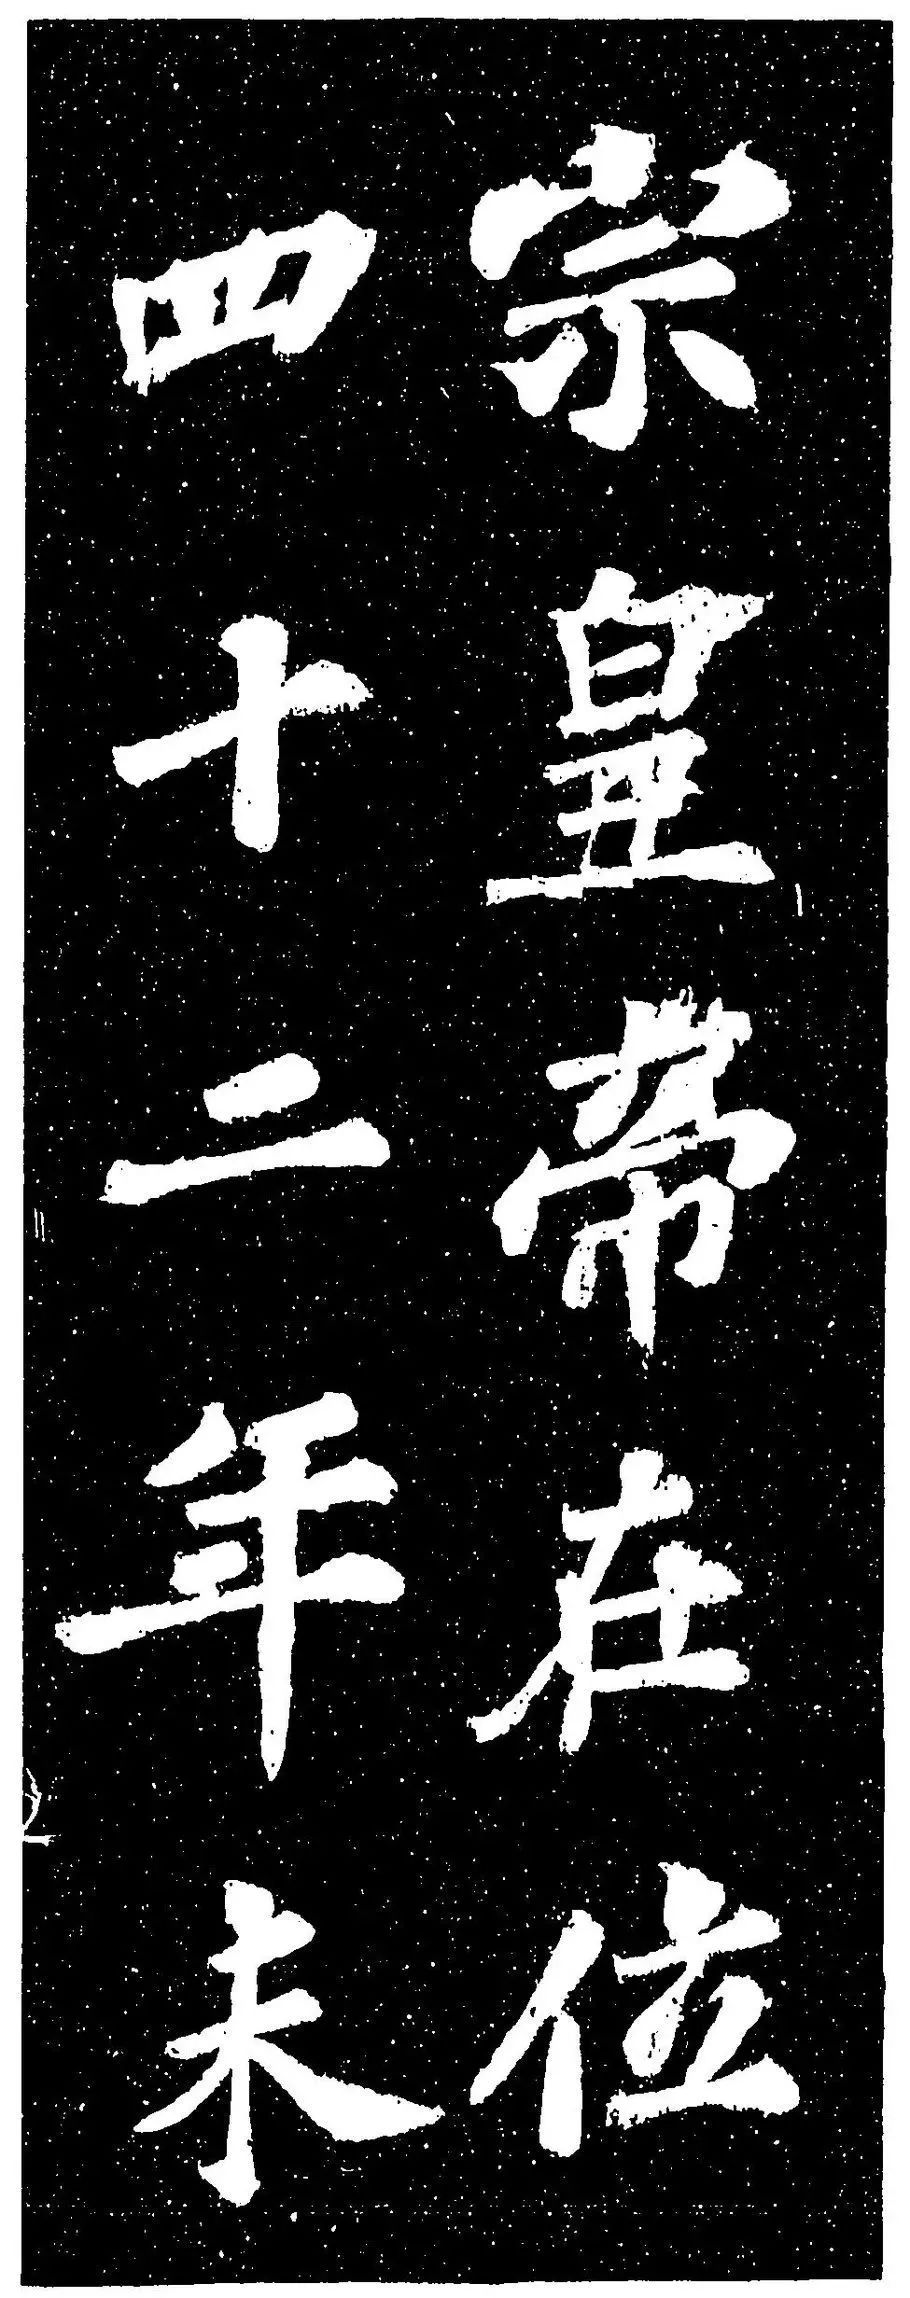 宗皇帝在位
四十二年未